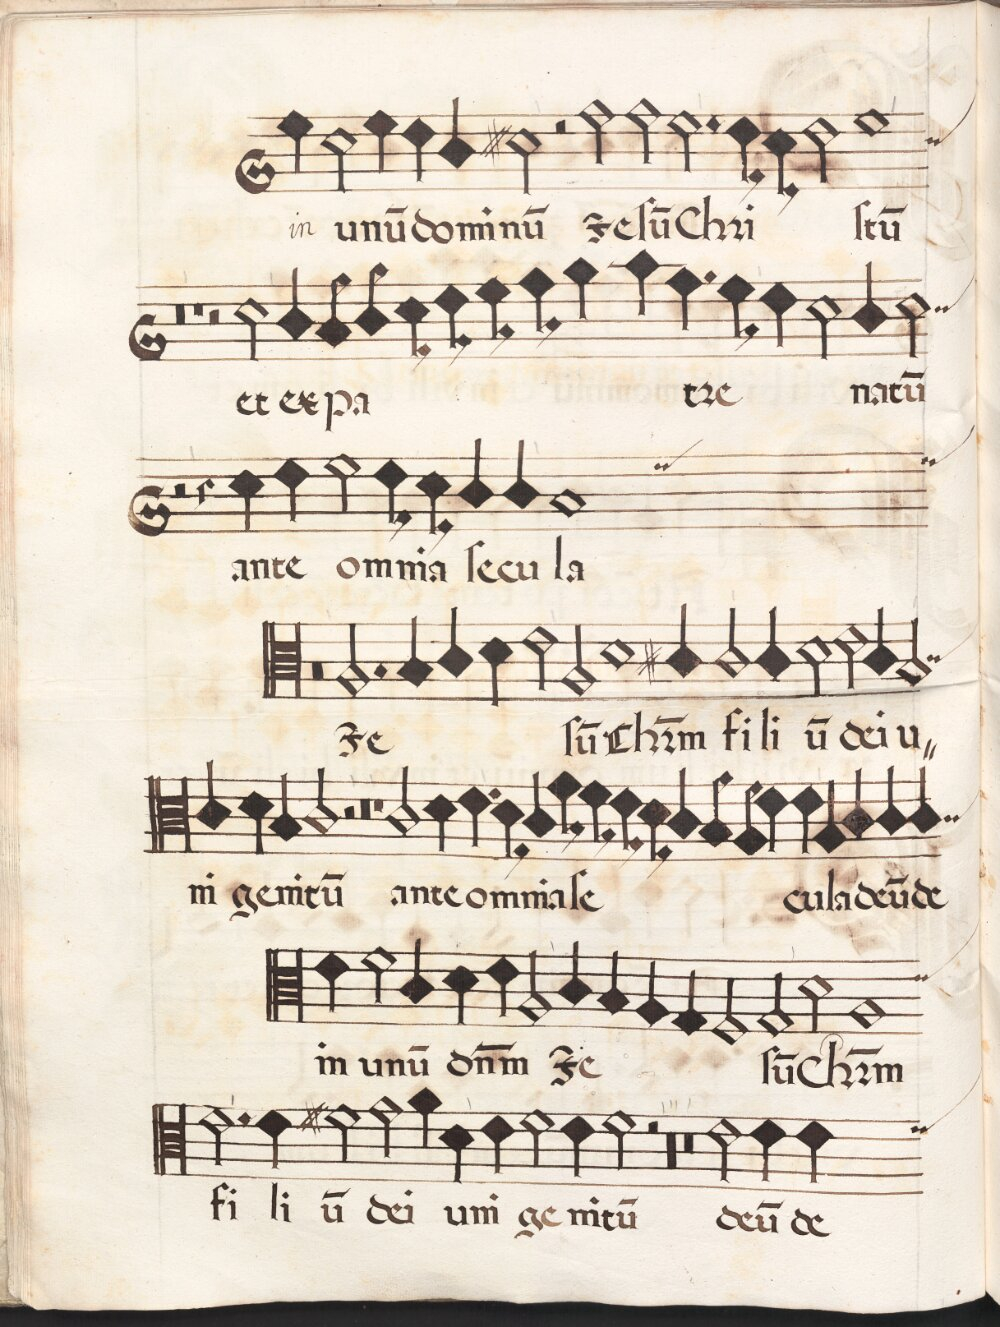 in unū dominū Jesū Chri stū
et ex pa tre natū
ante omnia secu la
Je sū Chr̄m fi li ū dei u
ni genitū ante omnia se cula deū de
in unū dn̄m Je sū Chr̄m
fi li ū dei uni ge nitū deū de